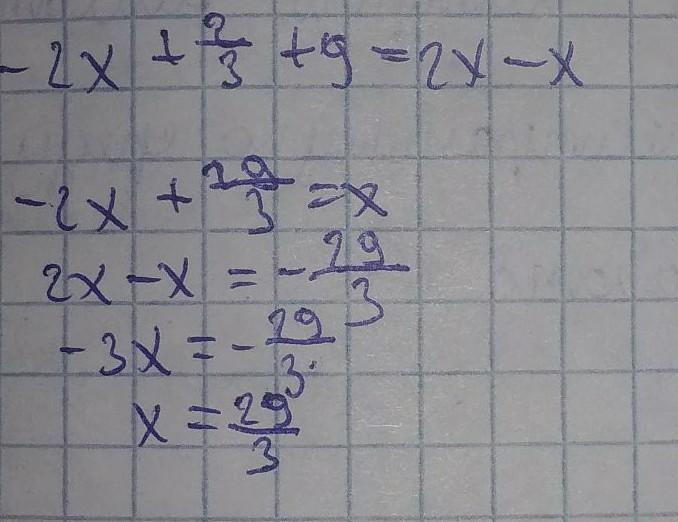 -2x + 2/3 + 9 = 2x - x
-2x + 29/3 = x
2x - x = - 29/3
-3x = - 29/3
x = 29/3